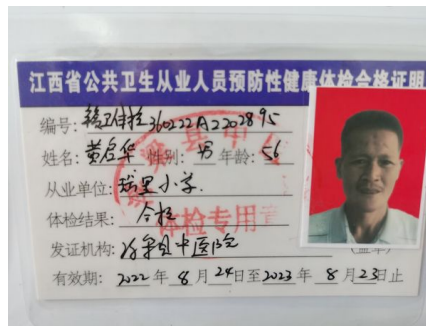 江西省公共卫生从业人员预防性健康体检合格证明
编号: 360222A2202895
姓名: 黄启华 性别: 男 年龄: 56
从业单位: 瑶里小学.
体检结果: 合格
体检专用章
发证机构: 浮梁县中医院 (盖章)
有效期: 2022年8月24日至2023年8月23日止